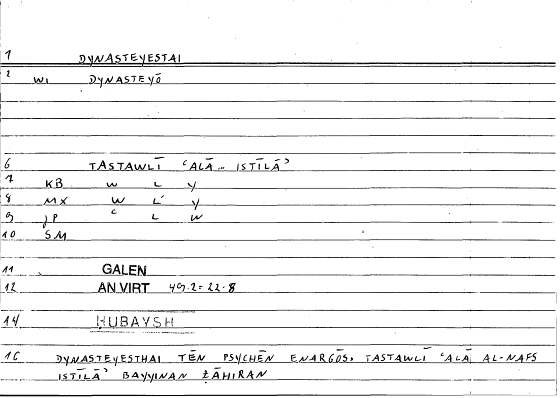 1 DYNASTEYESTAI
2 WI DYNASTEYŌ
6 TASTAWLĪ ʿALĀ... ISTĪLĀʾ
7 KB W L Y
8 MX W L Y
9 JP ʿ L W
10 SM
11 GALEN
12 AN VIRT 49.2=22.8
14 HUBAYSH
16 DYNASTEYESTHAI TĒN PSYCHĒN ENARGŌS, TASTAWLĪ ʿALĀ AL-NAFS
ISTĪLĀʾ BAYYINAN ẒĀHIRAN